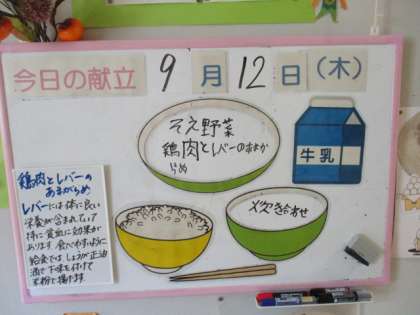 今日の献立 9月12日(木)
そえ野菜
鶏肉とレバーのあまか
らめ
牛乳
炊き合わせ
鶏肉とレバーの
あまがらめ
レバーには体に良い
栄養が含まれていて
特に貧血に効果が
あります 食べやすいように
給食では しょうが正油
酒で下味を付けて
米粉で揚げます